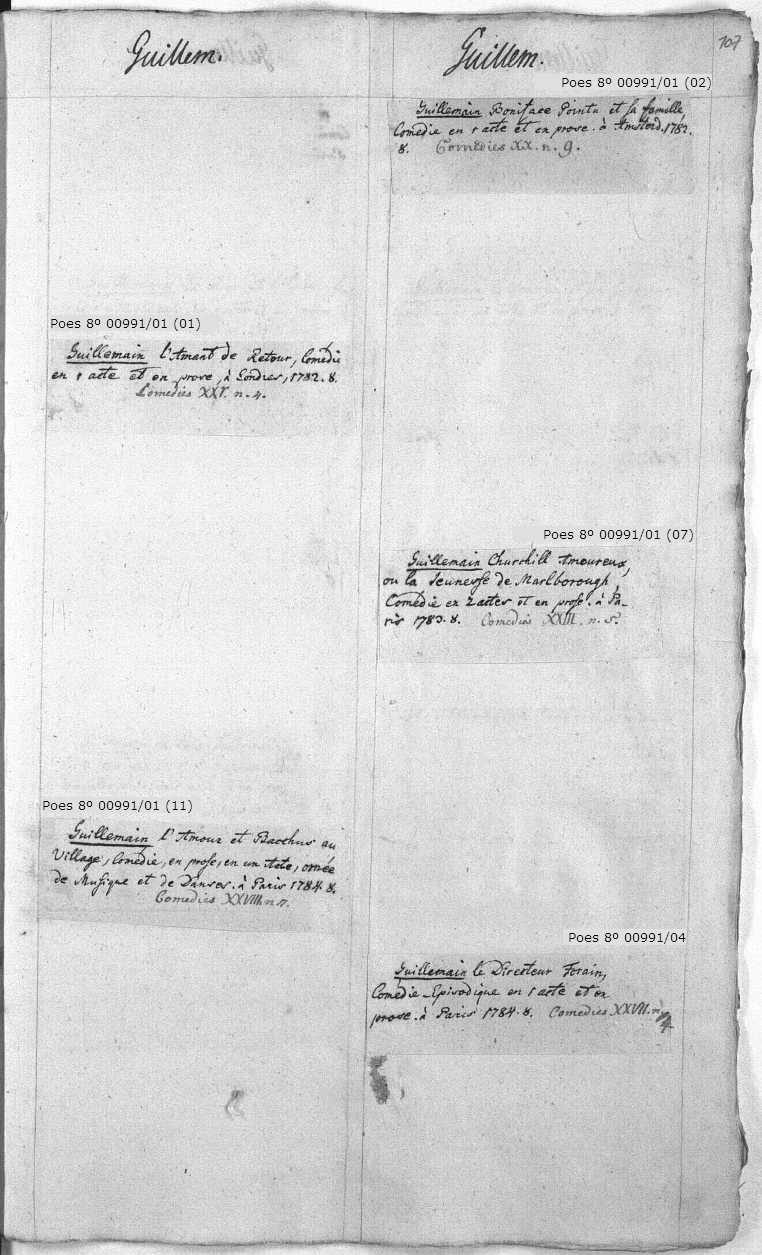 107
Guillem.
Poes 8º 00991/01 (01)
Guillemain l'Amant de Retour, Comedie
en 1 acte et en prose, à Londres, 1782. 8.
Comedies XXI. n. 4.
Poes 8º 00991/01 (11)
Guillemain l'Amour et Bacchus au
Village, Comedie, en prose, en un Acte, ornée
de Musique et de Danses. à Paris 1784. 8.
Comedies XXVIII. n.
Guillem.
Poes 8º 00991/01 (02)
Guillemain Boniface Pointu et sa famille,
Comedie en 1 acte et en prose. à Amsterd. 1782.
8. Comedies XX. n. 9.
Poes 8º 00991/01 (07)
Guillemain Churchill Amoureux,
ou la Jeunesse de Marlborough,
Comedie en 2 actes et en prose. à Pa-
ris 1783. 8. Comedies XXIII. n. 5.
Poes 8º 00991/04
Guillemain le Directeur Forain,
Comedie Episodique en 1 acte et en
prose. à Paris 1784. 8. Comedies XXVII. n.
4.